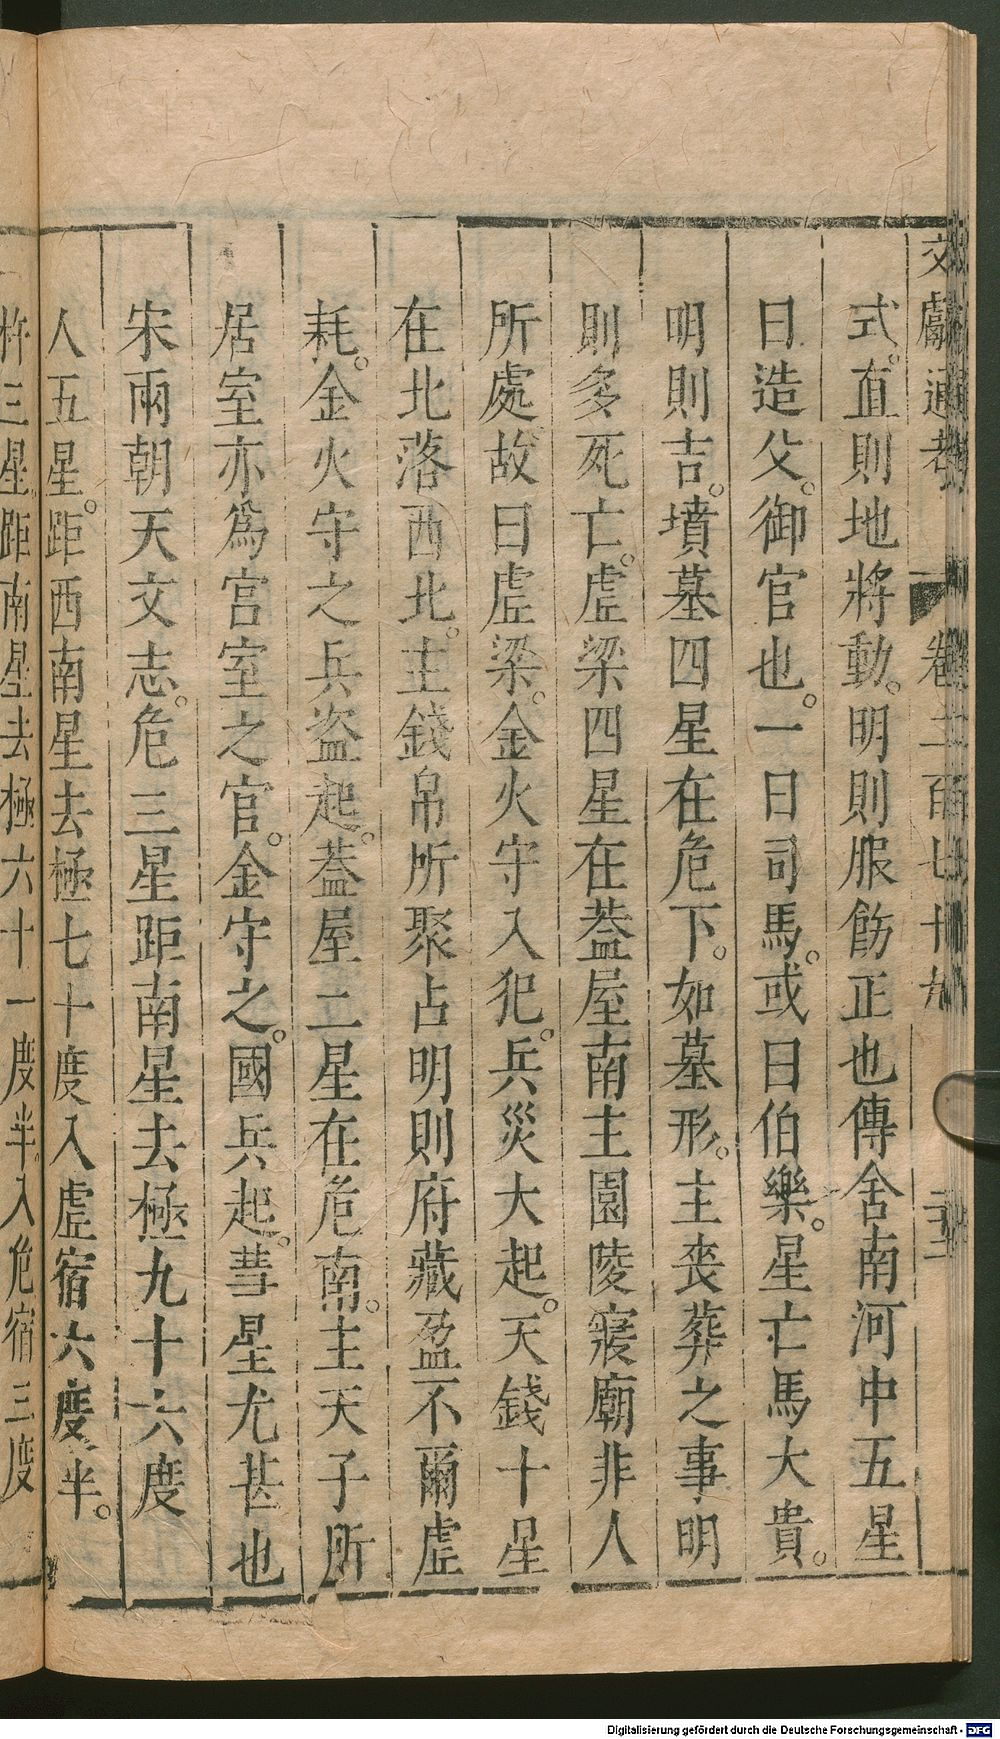 文獻通考 卷二百七十九
式。直則地將動。明則服飭正也傳舍南河中五星
曰造父。御官也。一曰司馬。或曰伯樂。星亡馬大貴。
明則吉。墳墓四星在危下。如墓形。主喪葬之事明
則多死亡。虛梁四星在蓋屋南主園陵寢廟非人
所處故曰虛梁。金火守入犯。兵災大起。天錢十星
在北落西北。主錢帛所聚占明則府藏盈不爾虛
耗。金火守之兵盜起。蓋屋二星在危南。主天子所
居室亦爲宮室之官。金守之。國兵起。彗星尤甚也
宋兩朝天文志。危三星距南星去極九十六度
人五星。距西南星去極七十度入虛宿六度半。
杵三星。距南星去極六十一度半。入危宿三度
Digitalisierung gefördert durch die Deutsche Forschungsgemeinschaft - DFG